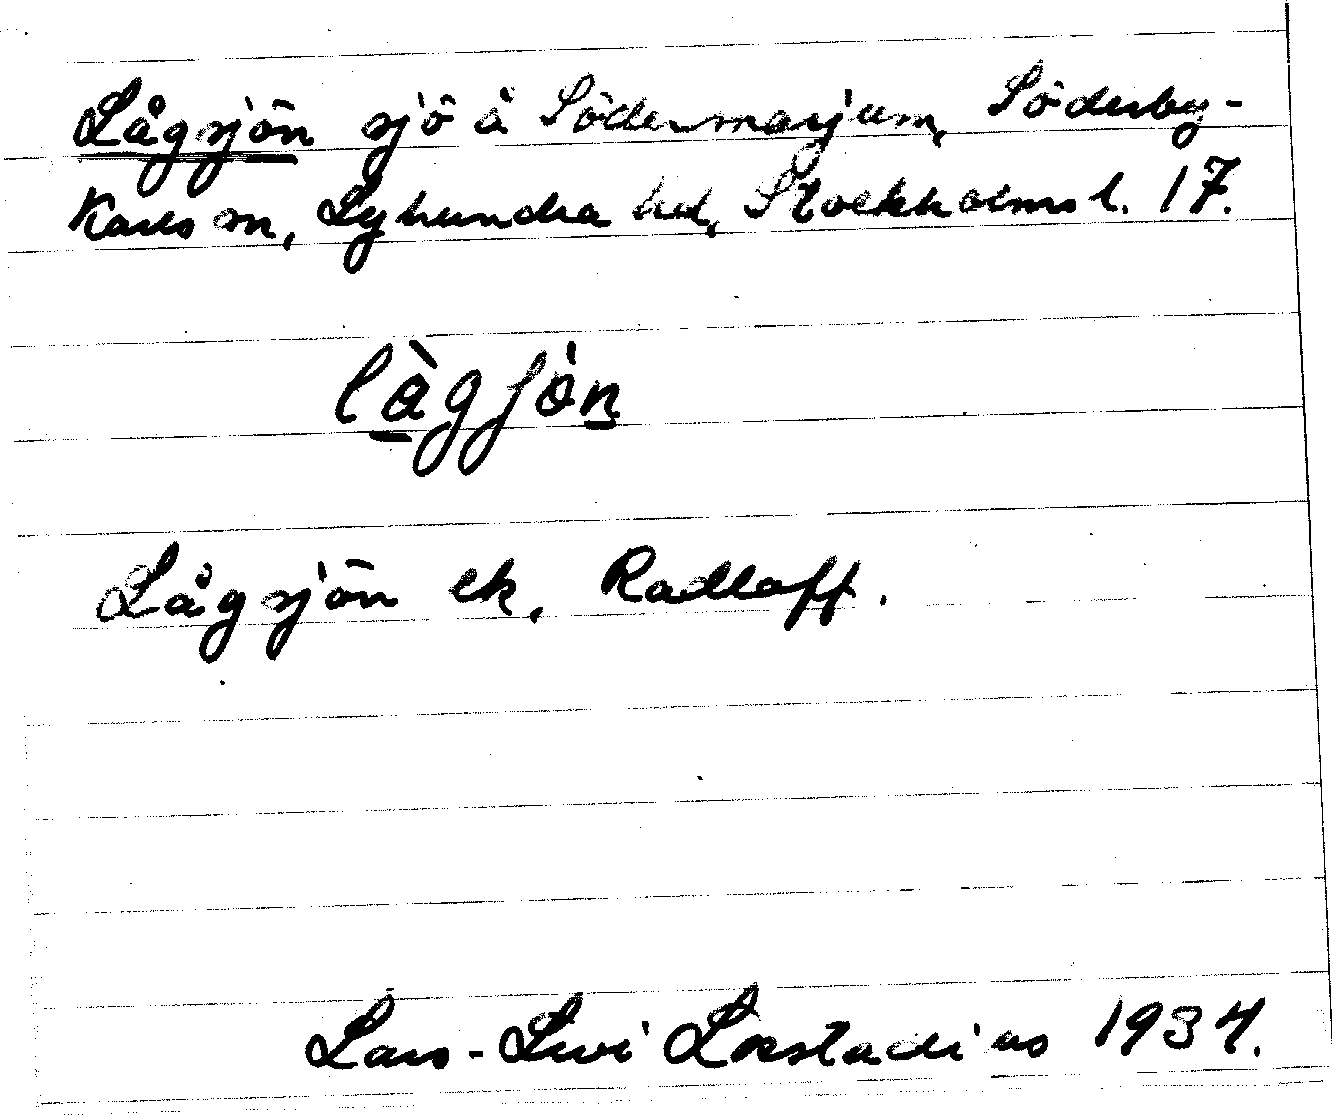 Lågsjön sjö å Södermarjum, Söderby-
Karls sn, Lyhundra hd, Stockholms l. 17.
lågjön
Lågsjön ek. Radloff.
Lars-Levi Læstadius 1934.